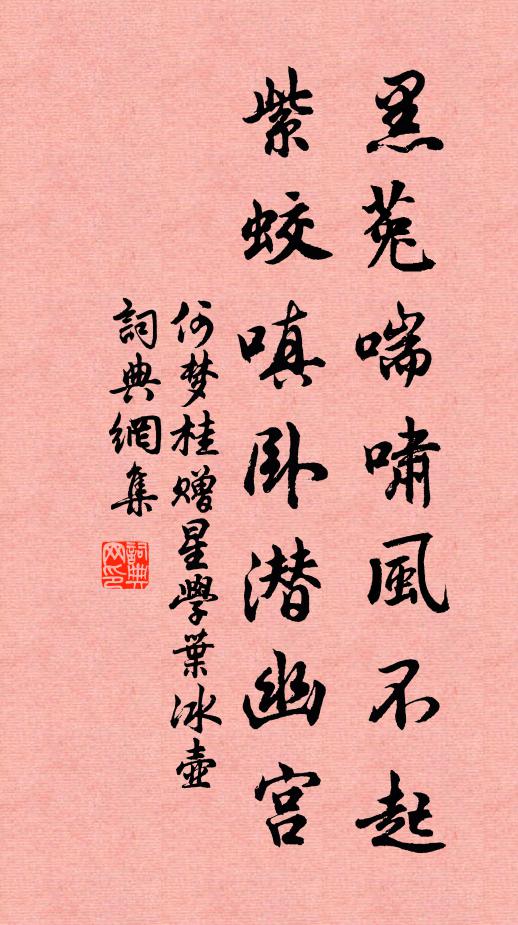 黑菟喘嘯風不起
紫蛟嗔卧潜幽宫
何梦桂赠星學葉冰壺
詞典網集
詞典网印